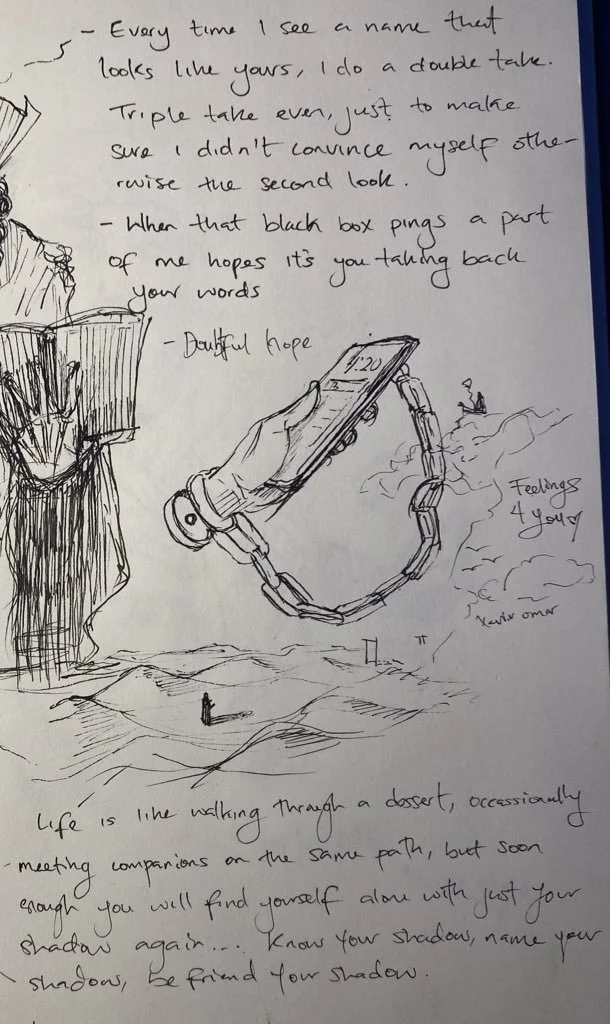 - Every time I see a name that
looks like yours, I do a double take.
Triple take even, just to make
sure I didn't convince myself othe-
rwise the second look.
- When that black box pings a part
of me hopes it's you taking back
your words
- Doubtful hope
4:20
Feelings
4 you
omar
Life is like walking through a dessert, occassionally
meeting companions on the same path, but soon
enough you will find yourself alone with just your
shadow again.... Know your shadow, name your
shadow, be friend your shadow.